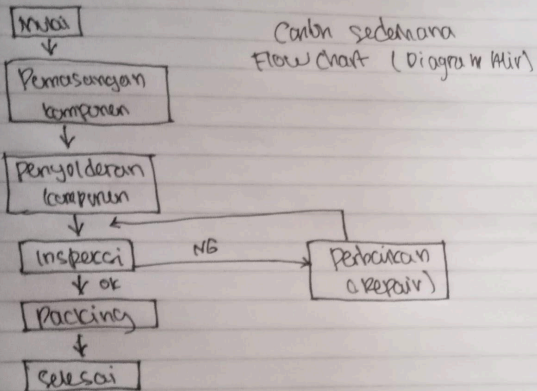 Mulai
Contoh sederhana
Flow Chart (Diagram Alir)
Pemasangan
komponen
Penyolderan
komponen
Inspeksi
NG
Perbaikan
(Repair)
OK
Packing
Selesai